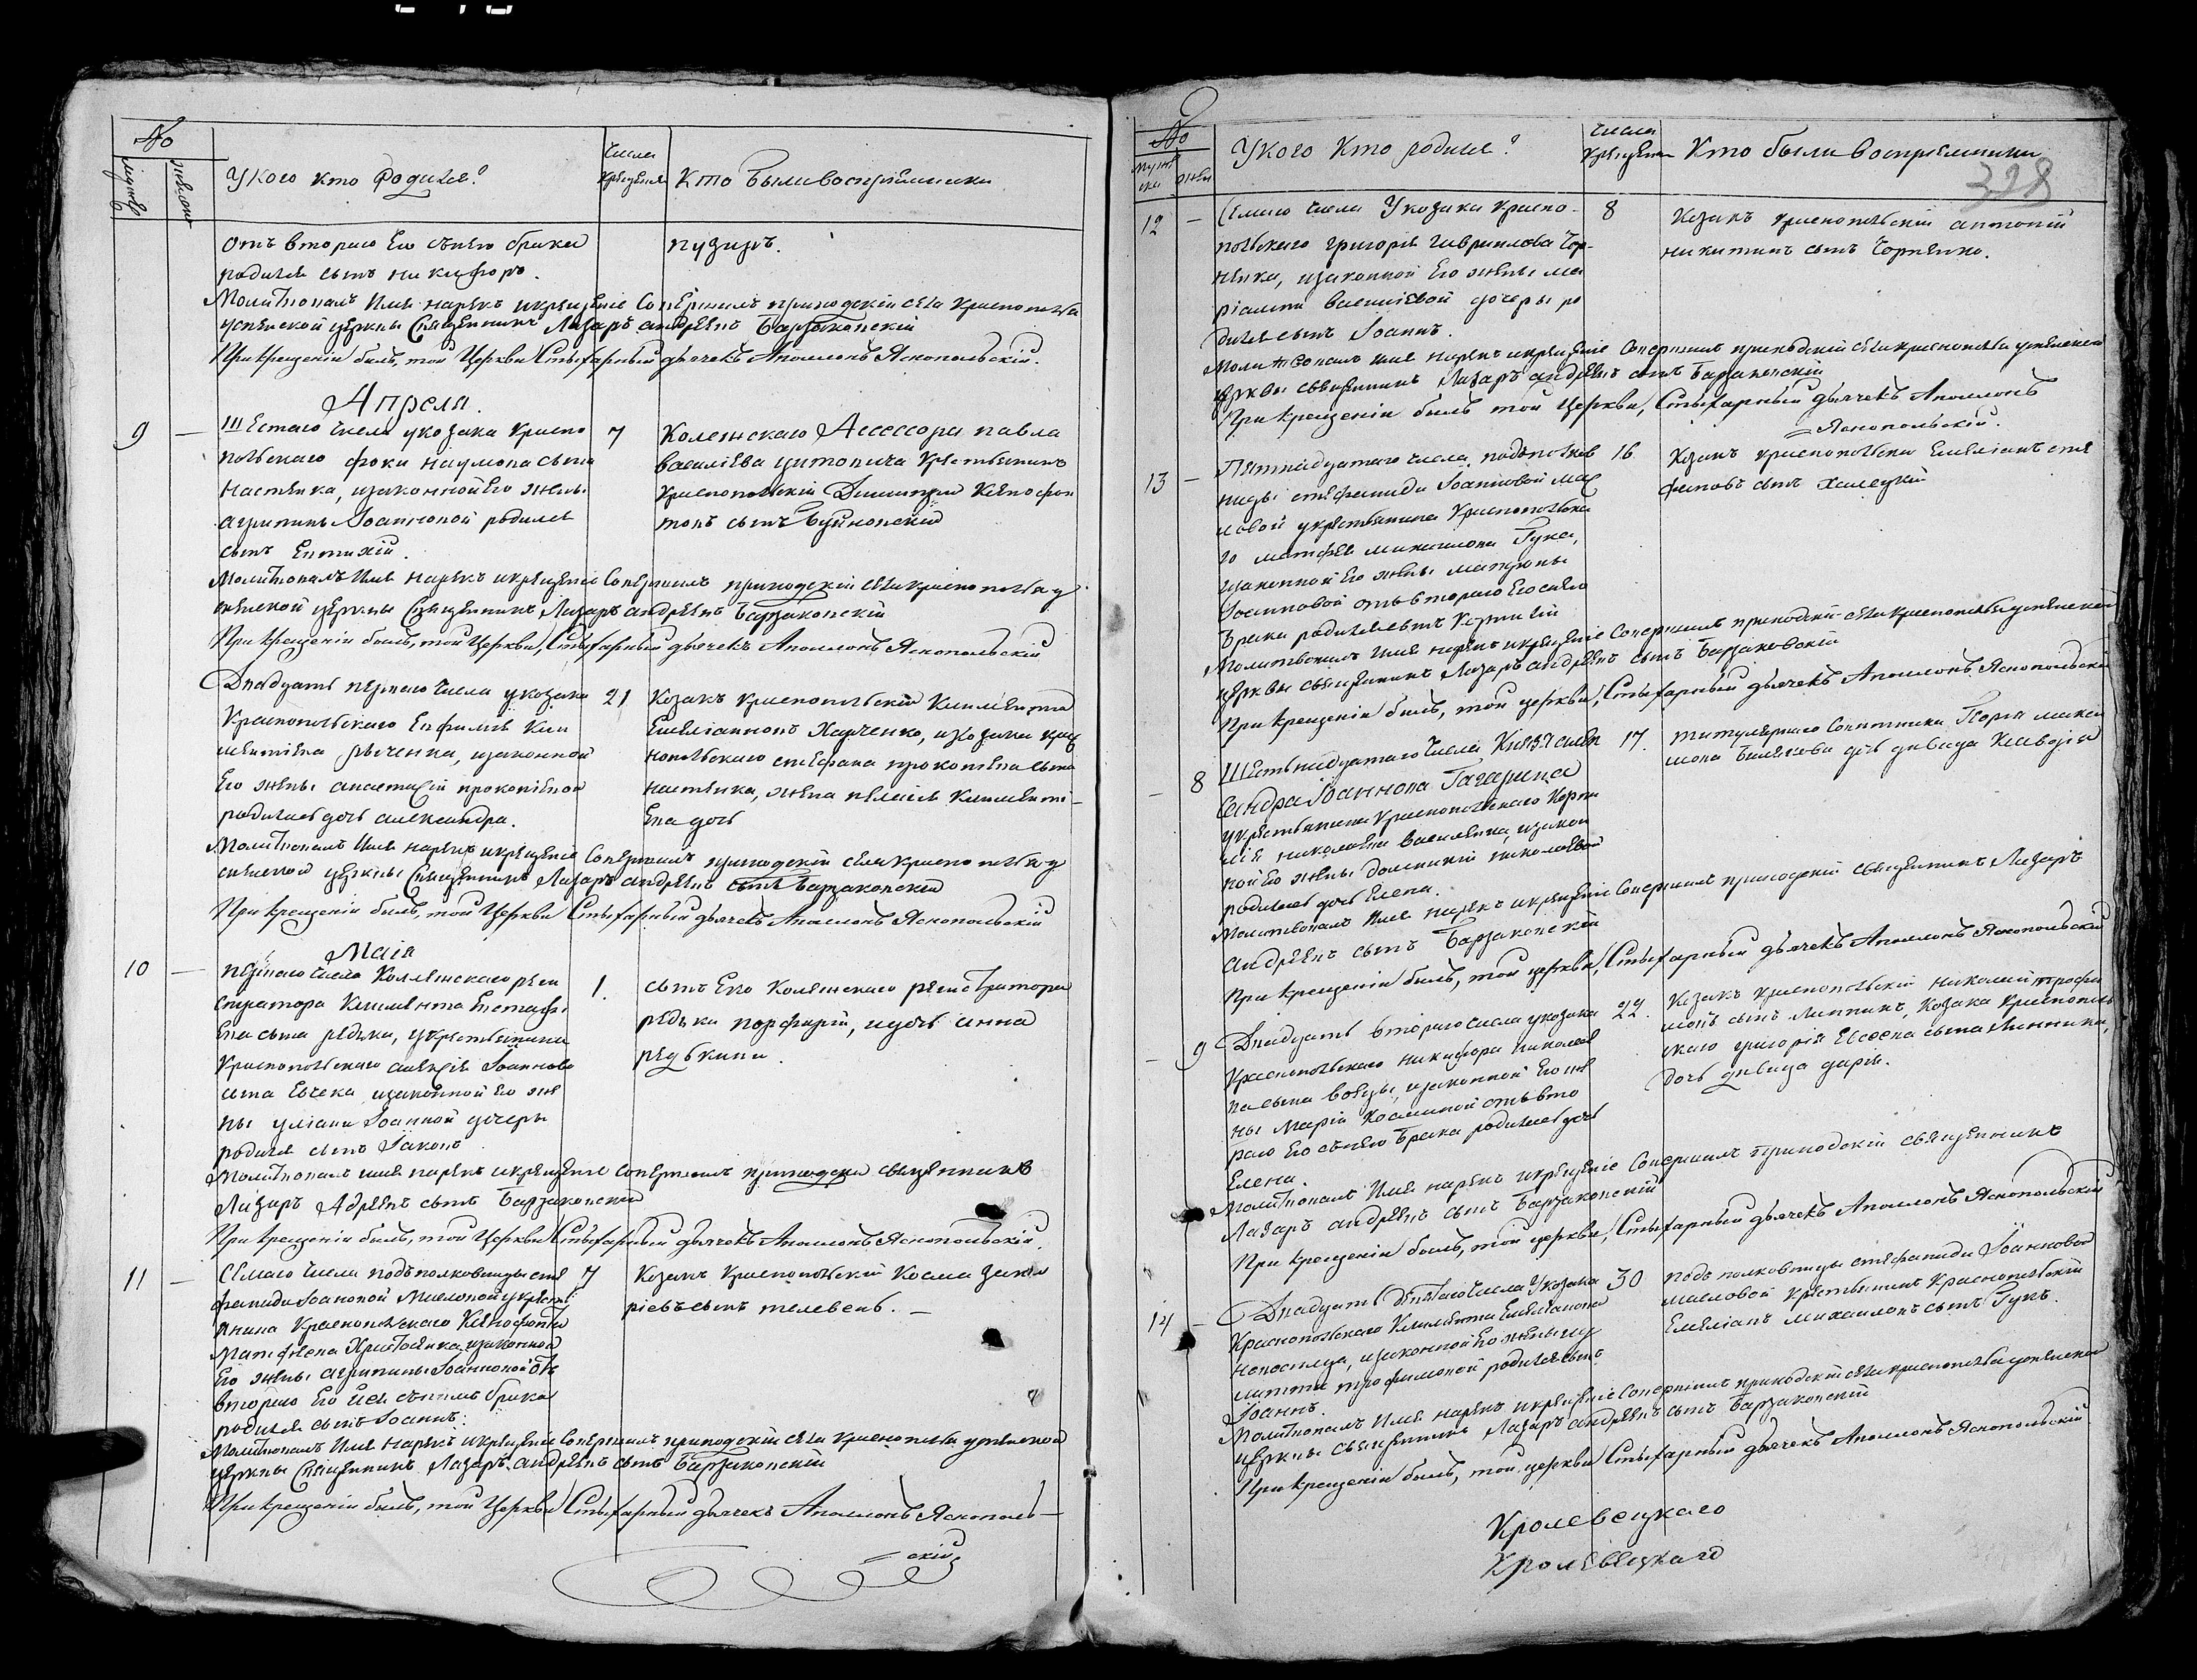 No
мужеска
женска
У кого кто родился?
Числа
крещения
Кто были восприемники
отъ втораго его сѣпего брака
родился сынъ Никифоръ.
Пузиръ.
Молитвовалъ имя нарекъ икрещеніе совершилъ приходскій села Краснополья
успенской церквы Священникъ Лазаръ андреевъ Барзаковскій
При крещеніи былъ, той Церкви Стыхарный дьячекъ Аполлонъ Яснопольскій.
Апреля.
9 — Шестаго числа у козака красно
польскаго фоки наумова сына
Настенка, изаконной его жены
агрипины Іоанновой родился
сынъ Евтихій.
7
Колежскаго Асессора павла
василіева крестьянинъ
краснопольскій Димитрій Ксенофон
товъ сынъ
Молитвовалъ Имя нарекъ икрещеніе Совершилъ приходскій села краснополья у
спенской церквы Священникъ Лазаръ андреевъ Барзаковскій
При крещеніи былъ, той Церкви, Стыхарный дьячекъ Аполлонъ Яснопольскій
Двадцать перваго числа у козака
Краснопольскаго Евфимія Кли
ментіева изаконной
его жены анастасіи прокопіевой
родилась дочь александра.
21
Козакъ краснопольскій Климентъ
Емеліановъ Харченко, икозака крас
нопольскаго стефана прокопіева сына
настенка, жена пелагія Клименті-
ева дочь
Молитвовалъ Имя нарекъ икрещеніе Совершилъ приходскій села краснополья у
спенской церквы Священникъ Лазаръ андреевъ сынъ Барзаковскій
При крещеніи былъ, той Церкви Стыхарный дьячекъ Аполлонъ Яснопольскій
Маія
10 — перваго числа Коллежскаго реги
стратора Климента Евстафі
ева сына редьки, у крестьянина
Краснопольскаго алексія Іоаннова
сына изаконной его же
ны уліани Іоанной дочеры
родился сынъ Іаковъ
1.
сынъ Его Колежскаго регистратора
редьки порфирій, идочь анна
редькина.
Молитвовалъ имя нарекъ икрещеніе совершилъ приходскій священникъ
Лазаръ Адреевъ сынъ Барзаковскій
При крещеніи былъ, той Церкви Стыхарный дьячекъ Аполлонъ Яснопольскій.
11 — Семаго числа подъполковницы сте
фаниды Іоановой Масловой у крестья
янина Краснопольскаго Ксенофонта
Матфеева изаконной
Его жены агрипины Іоанновой отъ
втораго Его брака
родился сынъ Іоаннъ.
7
Козакъ Краснопольскій Косма Заха
ріевъ сынъ телевень. —
Молитвовалъ Имя нарекъ икрещеніе Совершилъ приходскій села краснополья успенской
церквы Священникъ Лазаръ андреевъ сынъ Барзаковскій
При крещеніи былъ, той Церкви Стыхарный дьячекъ Аполлонъ Яснополь—
— скій
No
муже
ска
жен
У кого кто родился?
Числа
крещения
Кто были восприемники
328
12 — Семаго числа У козака красно-
польскаго григорія гаврилова Чор-
ненка, изаконной Его жены ма
ріамны василіевой дочеры ро
дился сынъ Іоаннъ.
8
Козакъ краснопольскій антоній
никитинъ сынъ Чорненко.
Молитвовалъ имя нарекъ икрещеніе Совершилъ приходскій села краснополья успенской
церквы священникъ Лазаръ андреевъ сынъ Барзаковскій
При крещеніи былъ той Церкви, Стыхарный дьячекъ Аполлонъ
= Яснопольскій.
13 — Пятнадцатаго числа подполков
ницы стефаниды Іоанновой Мас
ловой у крестьянина Краснопольска
го матфея михаилова Гука,
изаконной Его жены матроны
Іоанновой отъ втораго Его сего
Брака родился сынъ Корнилій
16
Козакъ краснопольскій Емеліанъ сте
фановъ сынъ Халецкій
Молитвовалъ Имя нарекъ икрещеніе Совершилъ приходскій села краснополья успенской
церквы священникъ Лазаръ андреевъ сынъ Барзаковскій
При крещеніи былъ, той церкви, Стыхарный дьячекъ Аполлонъ Яснопольскій
— 8 Шестьнадцатаго числа Князя алек
сандра Іоаннова Гагарина
у крестьянина краснопольскаго Корни
лія николаева василенка, изакон
ной Его жены домникіи николаевой
родилась дочь Елена.
17.
титулярнаго Советника Георгія
дочь девица Клавдія
Молитвовалъ Имя нарекъ икрещеніе Совершилъ приходскій священникъ Лазаръ
андреевъ сынъ Барзаковскій
При крещеніи былъ, той церкви, Стыхарный дьячекъ Аполлонъ Яснопольскій
— 9 Двадцать втораго числа у козака
Краснопольскаго никифора николае
ва сына изаконной Его же
ны Маріи Косминой отъ вто
раго Его сѣпего Брака родилась дочь
Елена.
22.
Козакъ краснопольскій Николай трофи
мовъ сынъ Линникъ, Козака краснополь
скаго григорія Евсеева сына Линника,
дочь девица дарія.
Молитвовалъ Имя нарекъ икрещеніе Совершилъ Приходскій священникъ
Лазаръ андреевъ сынъ Барзаковскій
При крещеніи былъ, той церкви, Стыхарный дьячекъ Аполлонъ Яснопольскій
14 — Двадцать девятаго числа У козака
Краснопольскаго Климента Емеліанова
изаконной Его жены
трофимовой родился сынъ
Іоаннъ.
30
подъполковницы стефаниды Іоанновой
масловой крестьянинъ Краснопольскій
Емеліанъ михаиловъ сынъ Гукъ.
Молитвовалъ Имя нарекъ икрещеніе Совершилъ приходскій села краснополья успенской
церквы священникъ Лазаръ андреевъ сынъ Барзаковскій
При крещеніи былъ, той церкви Стыхарный дьячекъ Аполлонъ Яснопольскій
Кролевецкаго
Кролевецкаго